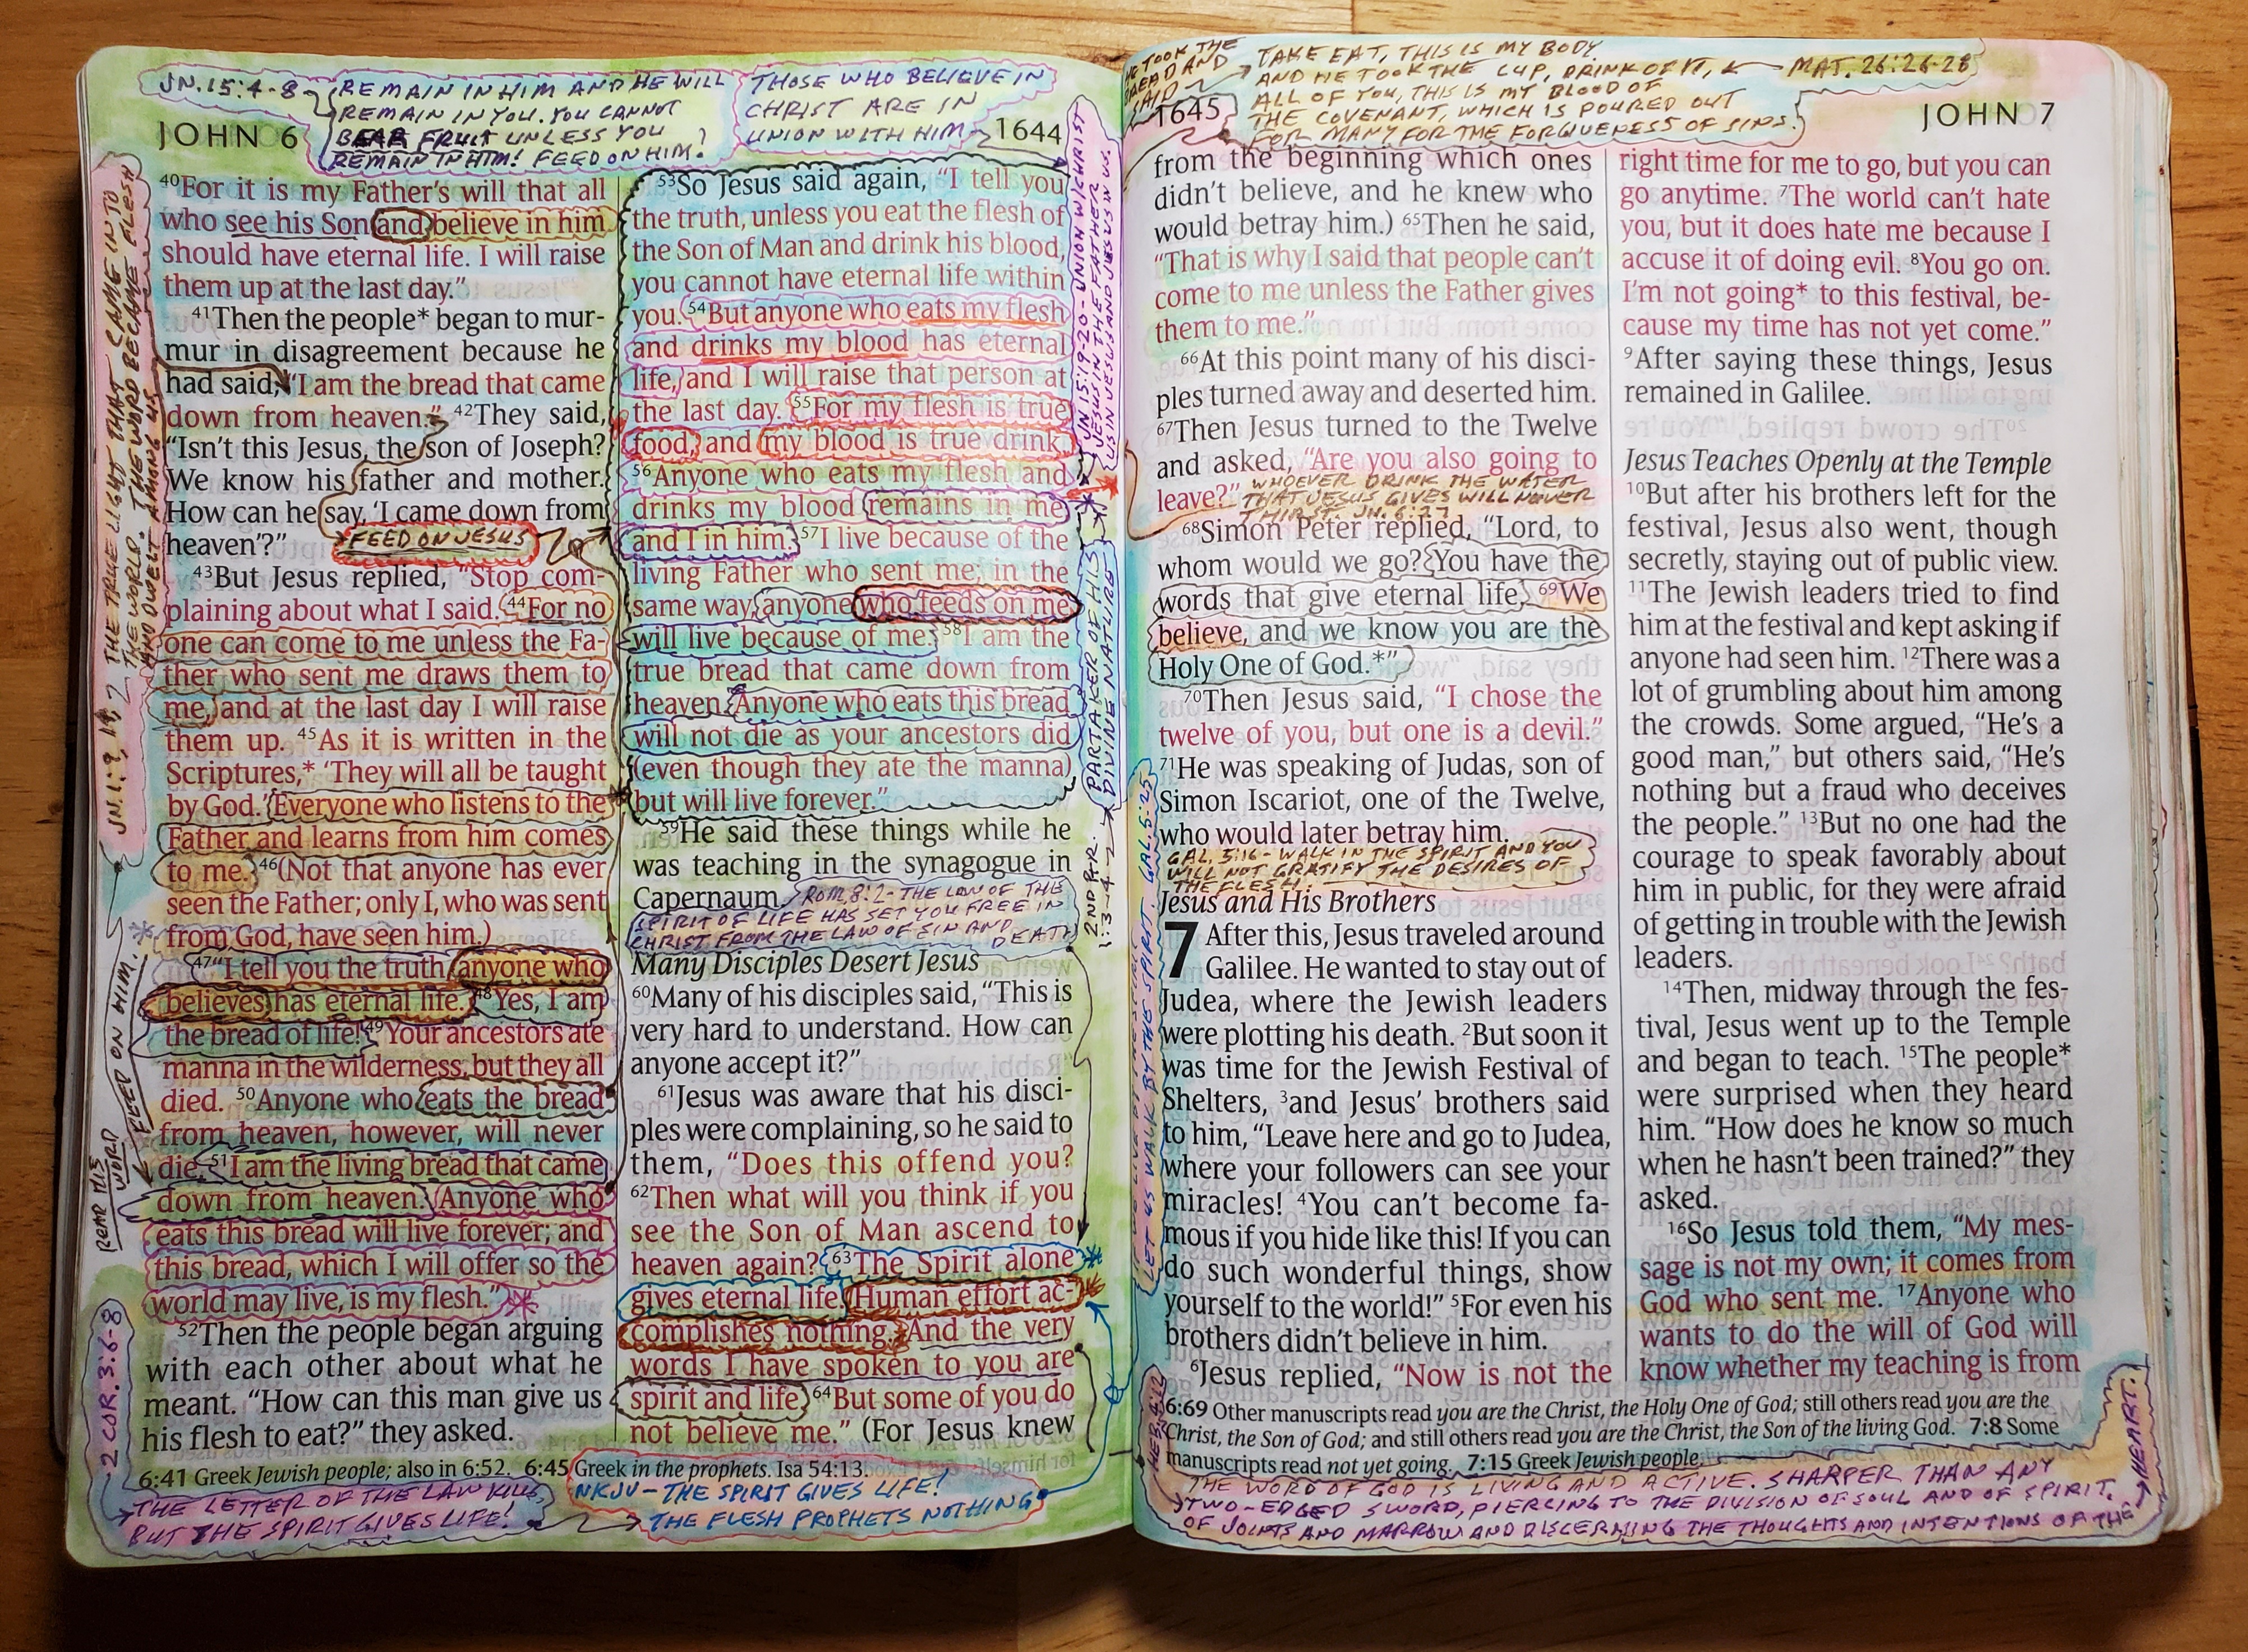 JN.15:4-8
REMAIN IN HIM AND HE WILL
REMAIN IN YOU. YOU CANNOT
BEAR FRUIT UNLESS YOU
REMAIN IN HIM! FEED ON HIM!
THOSE WHO BELIEVE IN
CHRIST ARE IN
UNION WITH HIM
JOHN 6
1644
JN.1:9, 14
THE TRUE LIGHT THAT CAME INTO
THE WORLD. THE WORD BECAME FLESH
AND DWELT AMONG US
FEED ON HIM.
READ HIS
WORD
2 COR. 3:6-8
40For it is my Father's will that all
who see his Son and believe in him
should have eternal life. I will raise
them up at the last day."
41Then the people* began to mur-
mur in disagreement because he
had said, "I am the bread that came
down from heaven." 42They said,
"Isn't this Jesus, the son of Joseph?
We know his father and mother.
How can he say, 'I came down from
heaven'?"
FEED ON JESUS
43But Jesus replied, "Stop com-
plaining about what I said. 44For no
one can come to me unless the Fa-
ther who sent me draws them to
me, and at the last day I will raise
them up. 45As it is written in the
Scriptures,* 'They will all be taught
by God.' Everyone who listens to the
Father and learns from him comes
to me. 46(Not that anyone has ever
seen the Father; only I, who was sent
from God, have seen him.)
47"I tell you the truth, anyone who
believes has eternal life. 48Yes, I am
the bread of life! 49Your ancestors ate
manna in the wilderness, but they all
died. 50Anyone who eats the bread
from heaven, however, will never
die. 51I am the living bread that came
down from heaven. Anyone who
eats this bread will live forever; and
this bread, which I will offer so the
world may live, is my flesh."
52Then the people began arguing
with each other about what he
meant. "How can this man give us
his flesh to eat?" they asked.
53So Jesus said again, "I tell you
the truth, unless you eat the flesh of
the Son of Man and drink his blood,
you cannot have eternal life within
you. 54But anyone who eats my flesh
and drinks my blood has eternal
life, and I will raise that person at
the last day. 55For my flesh is true
food, and my blood is true drink.
56Anyone who eats my flesh and
drinks my blood remains in me,
and I in him. 57I live because of the
living Father who sent me; in the
same way, anyone who feeds on me
will live because of me. 58I am the
true bread that came down from
heaven. Anyone who eats this bread
will not die as your ancestors did
(even though they ate the manna)
but will live forever."
59He said these things while he
was teaching in the synagogue in
Capernaum.
ROM. 8:2 - THE LAW OF THE
SPIRIT OF LIFE HAS SET YOU FREE IN
CHRIST FROM THE LAW OF SIN AND
DEATH
Many Disciples Desert Jesus
60Many of his disciples said, "This is
very hard to understand. How can
anyone accept it?"
61Jesus was aware that his disci-
ples were complaining, so he said to
them, "Does this offend you?
62Then what will you think if you
see the Son of Man ascend to
heaven again? 63The Spirit alone
gives eternal life. Human effort ac-
complishes nothing. And the very
words I have spoken to you are
spirit and life. 64But some of you do
not believe me." (For Jesus knew
JN 15:19-20 - UNION W/CHRIST
JESUS IN THE FATHER
US IN JESUS AND JESUS IN US.
PARTAKER OF HIS
DIVINE NATURE
2ND PTR.
1:3-4
6:41 Greek Jewish people; also in 6:52. 6:45 Greek in the prophets. Isa 54:13.
THE LETTER OF THE LAW KILLS,
BUT THE SPIRIT GIVES LIFE!
NKJV - THE SPIRIT GIVES LIFE!
THE FLESH PROPHETS NOTHING
HE TOOK THE
BREAD AND
SAID
TAKE EAT, THIS IS MY BODY.
AND HE TOOK THE CUP, DRINK OF IT,
ALL OF YOU, THIS IS MY BLOOD OF
THE COVENANT, WHICH IS POURED OUT
FOR MANY FOR THE FORGIVENESS OF SINS.
MAT. 26:26-28
1645
JOHN 7
from the beginning which ones
didn't believe, and he knew who
would betray him.) 65Then he said,
"That is why I said that people can't
come to me unless the Father gives
them to me."
66At this point many of his disci-
ples turned away and deserted him.
67Then Jesus turned to the Twelve
and asked, "Are you also going to
leave?"
WHOEVER DRINK THE WATER
THAT JESUS GIVES WILL NEVER
THIRST. JN. 6:27
68Simon Peter replied, "Lord, to
whom would we go? You have the
words that give eternal life. 69We
believe, and we know you are the
Holy One of God.*"
70Then Jesus said, "I chose the
twelve of you, but one is a devil."
71He was speaking of Judas, son of
Simon Iscariot, one of the Twelve,
who would later betray him.
GAL. 5:16 - WALK IN THE SPIRIT AND YOU
WILL NOT GRATIFY THE DESIRES OF
THE FLESH.
Jesus and His Brothers
7 After this, Jesus traveled around
Galilee. He wanted to stay out of
Judea, where the Jewish leaders
were plotting his death. 2But soon it
was time for the Jewish Festival of
Shelters, 3and Jesus' brothers said
to him, "Leave here and go to Judea,
where your followers can see your
miracles! 4You can't become fa-
mous if you hide like this! If you can
do such wonderful things, show
yourself to the world!" 5For even his
brothers didn't believe in him.
6Jesus replied, "Now is not the
LET US WALK BY THE SPIRIT. GAL. 5:25
right time for me to go, but you can
go anytime. 7The world can't hate
you, but it does hate me because I
accuse it of doing evil. 8You go on.
I'm not going* to this festival, be-
cause my time has not yet come."
9After saying these things, Jesus
remained in Galilee.
Jesus Teaches Openly at the Temple
10But after his brothers left for the
festival, Jesus also went, though
secretly, staying out of public view.
11The Jewish leaders tried to find
him at the festival and kept asking if
anyone had seen him. 12There was a
lot of grumbling about him among
the crowds. Some argued, "He's a
good man," but others said, "He's
nothing but a fraud who deceives
the people." 13But no one had the
courage to speak favorably about
him in public, for they were afraid
of getting in trouble with the Jewish
leaders.
14Then, midway through the fes-
tival, Jesus went up to the Temple
and began to teach. 15The people*
were surprised when they heard
him. "How does he know so much
when he hasn't been trained?" they
asked.
16So Jesus told them, "My mes-
sage is not my own; it comes from
God who sent me. 17Anyone who
wants to do the will of God will
know whether my teaching is from
6:69 Other manuscripts read you are the Christ, the Holy One of God; still others read you are the
Christ, the Son of God; and still others read you are the Christ, the Son of the living God. 7:8 Some
manuscripts read not yet going. 7:15 Greek Jewish people.
HEB. 4:12
THE WORD OF GOD IS LIVING AND ACTIVE. SHARPER THAN ANY
TWO-EDGED SWORD, PIERCING TO THE DIVISION OF SOUL AND OF SPIRIT,
OF JOINTS AND MARROW AND DISCERNING THE THOUGHTS AND INTENTIONS OF THE
HEART.